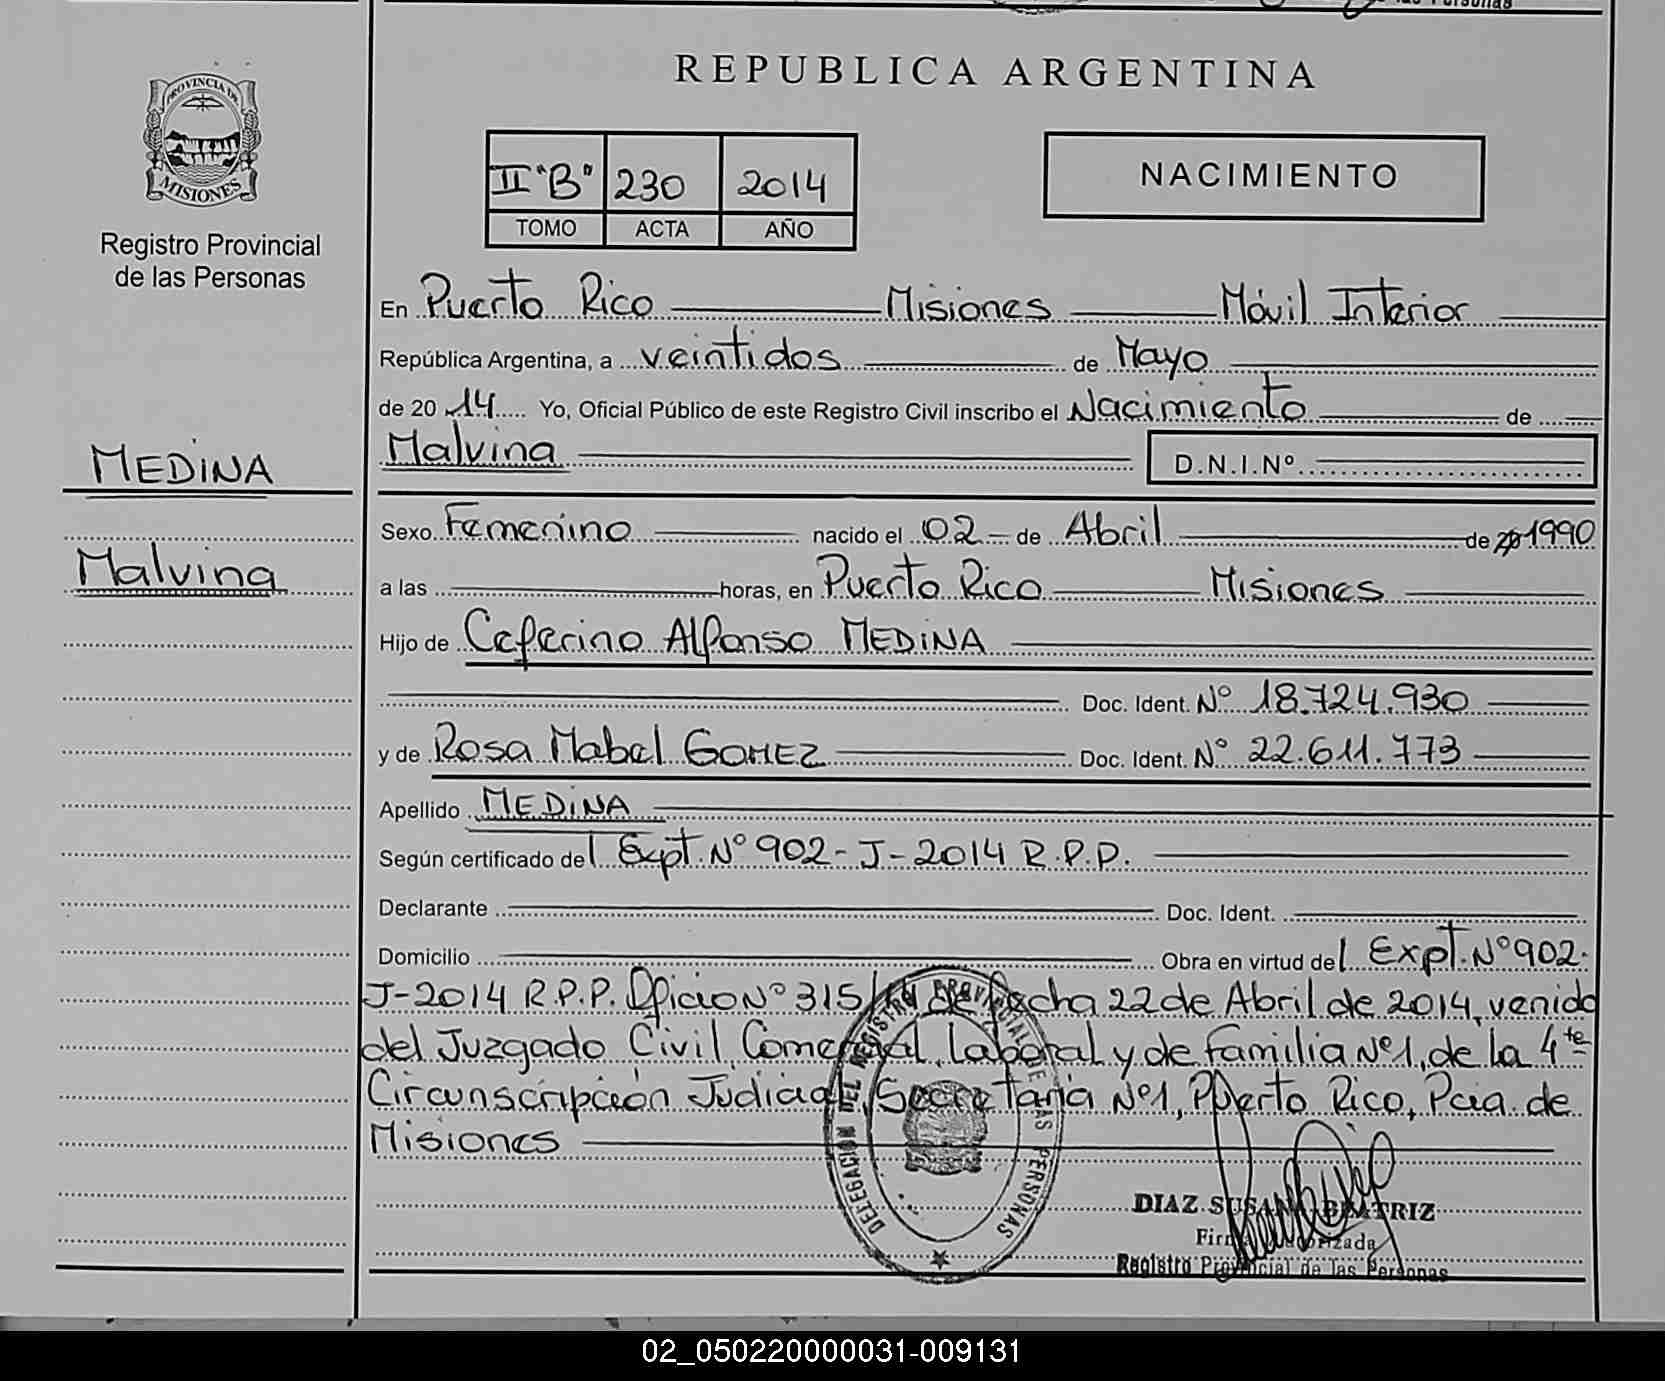 REPUBLICA ARGENTINA
PROVINCIA DE
MISIONES
Registro Provincial
de las Personas
II "B" 230 2014
TOMO ACTA AÑO
NACIMIENTO
En Puerto Rico Misiones Móvil Interior
República Argentina, a veintidos de Mayo
de 20 14 Yo, Oficial Público de este Registro Civil inscribo el Nacimiento de
Malvina D.N.I.Nº
MEDINA
Sexo Femenino nacido el 02 de Abril de 1990
Malvina
a las horas, en Puerto Rico Misiones
Hijo de Ceferino Alfonso MEDINA
Doc. Ident. Nº 18.724.930
y de Rosa Mabel GOMEZ Doc. Ident. Nº 22.611.773
Apellido MEDINA
Según certificado del Expt. Nº 902-J-2014 R.P.P.
Declarante Doc. Ident.
Domicilio Obra en virtud del Expt. Nº 902-
J-2014 R.P.P. Oficio Nº 315/14 de fecha 22 de Abril de 2014, venido
del Juzgado Civil Comercial, Laboral y de Familia Nº1, de la 4te
Circunscripción Judicial, Secretaria Nº1, Puerto Rico, Pcia. de
Misiones
DELEGACION DEL REGISTRO PROVINCIAL DE LAS PERSONAS
DIAZ SUSANA BEATRIZ
Firma Autorizada
Registro Provincial de las Personas
02_050220000031-009131